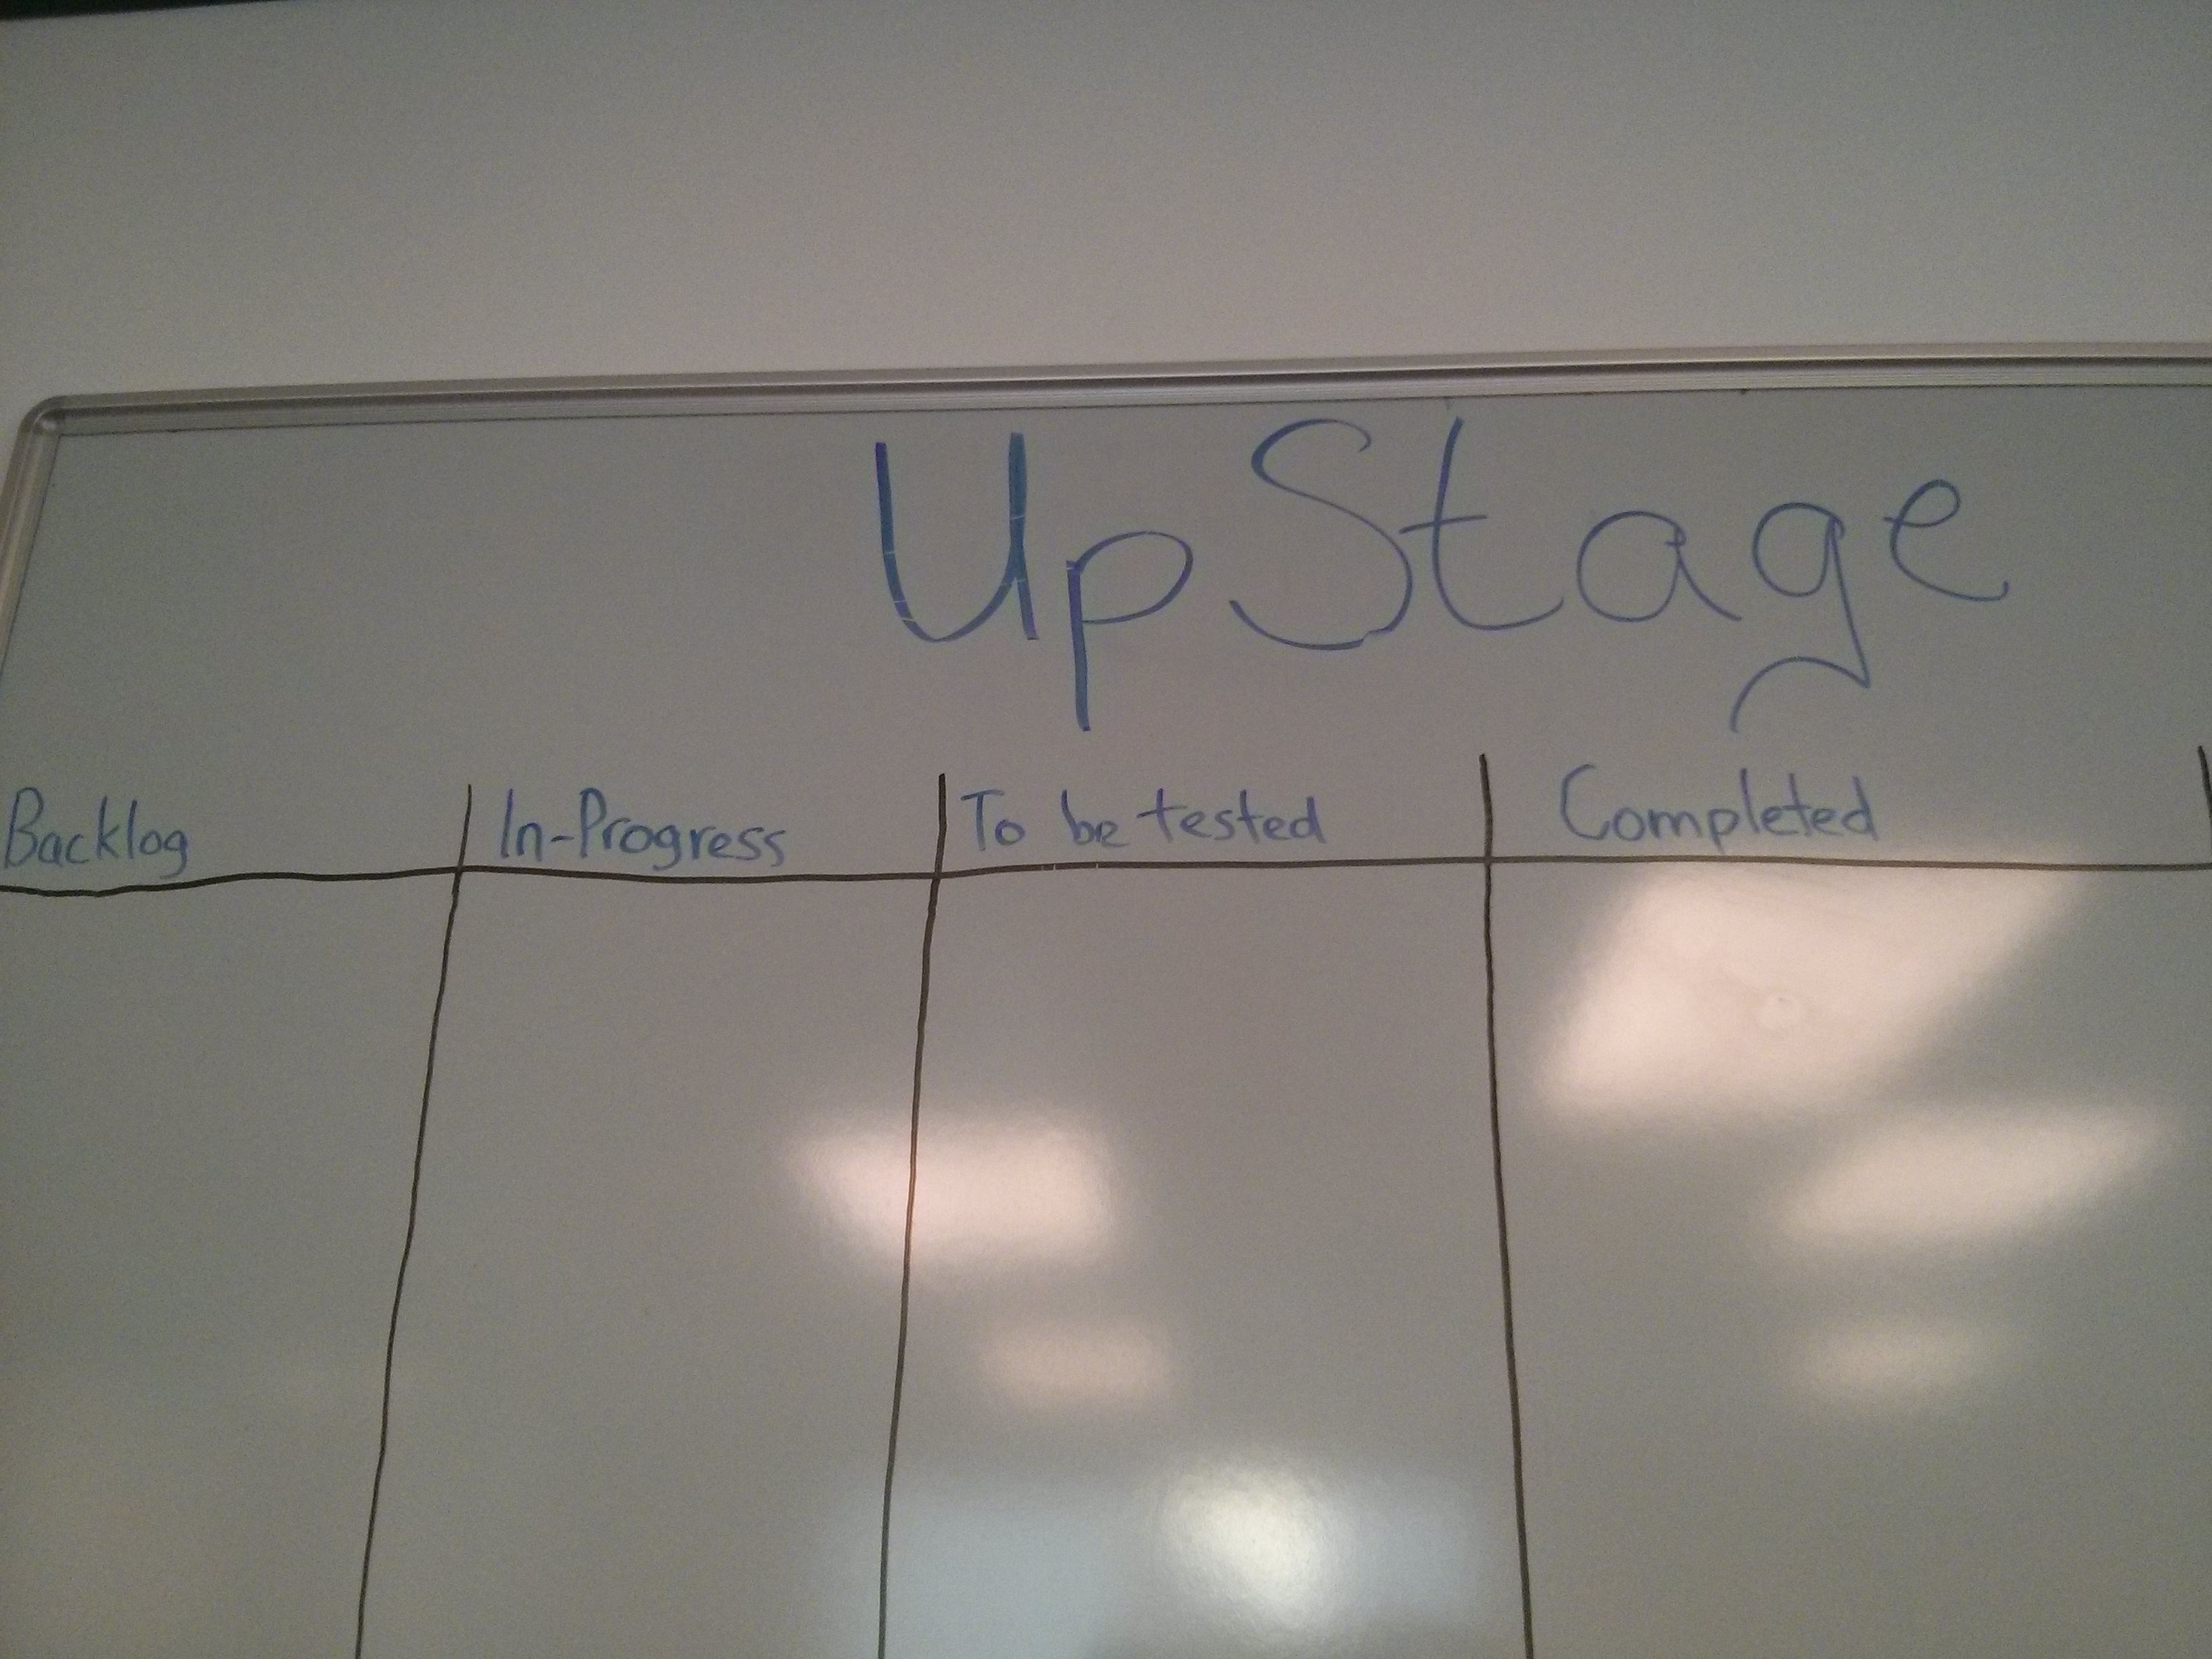 UpStage
Backlog In-Progress To be tested Completed